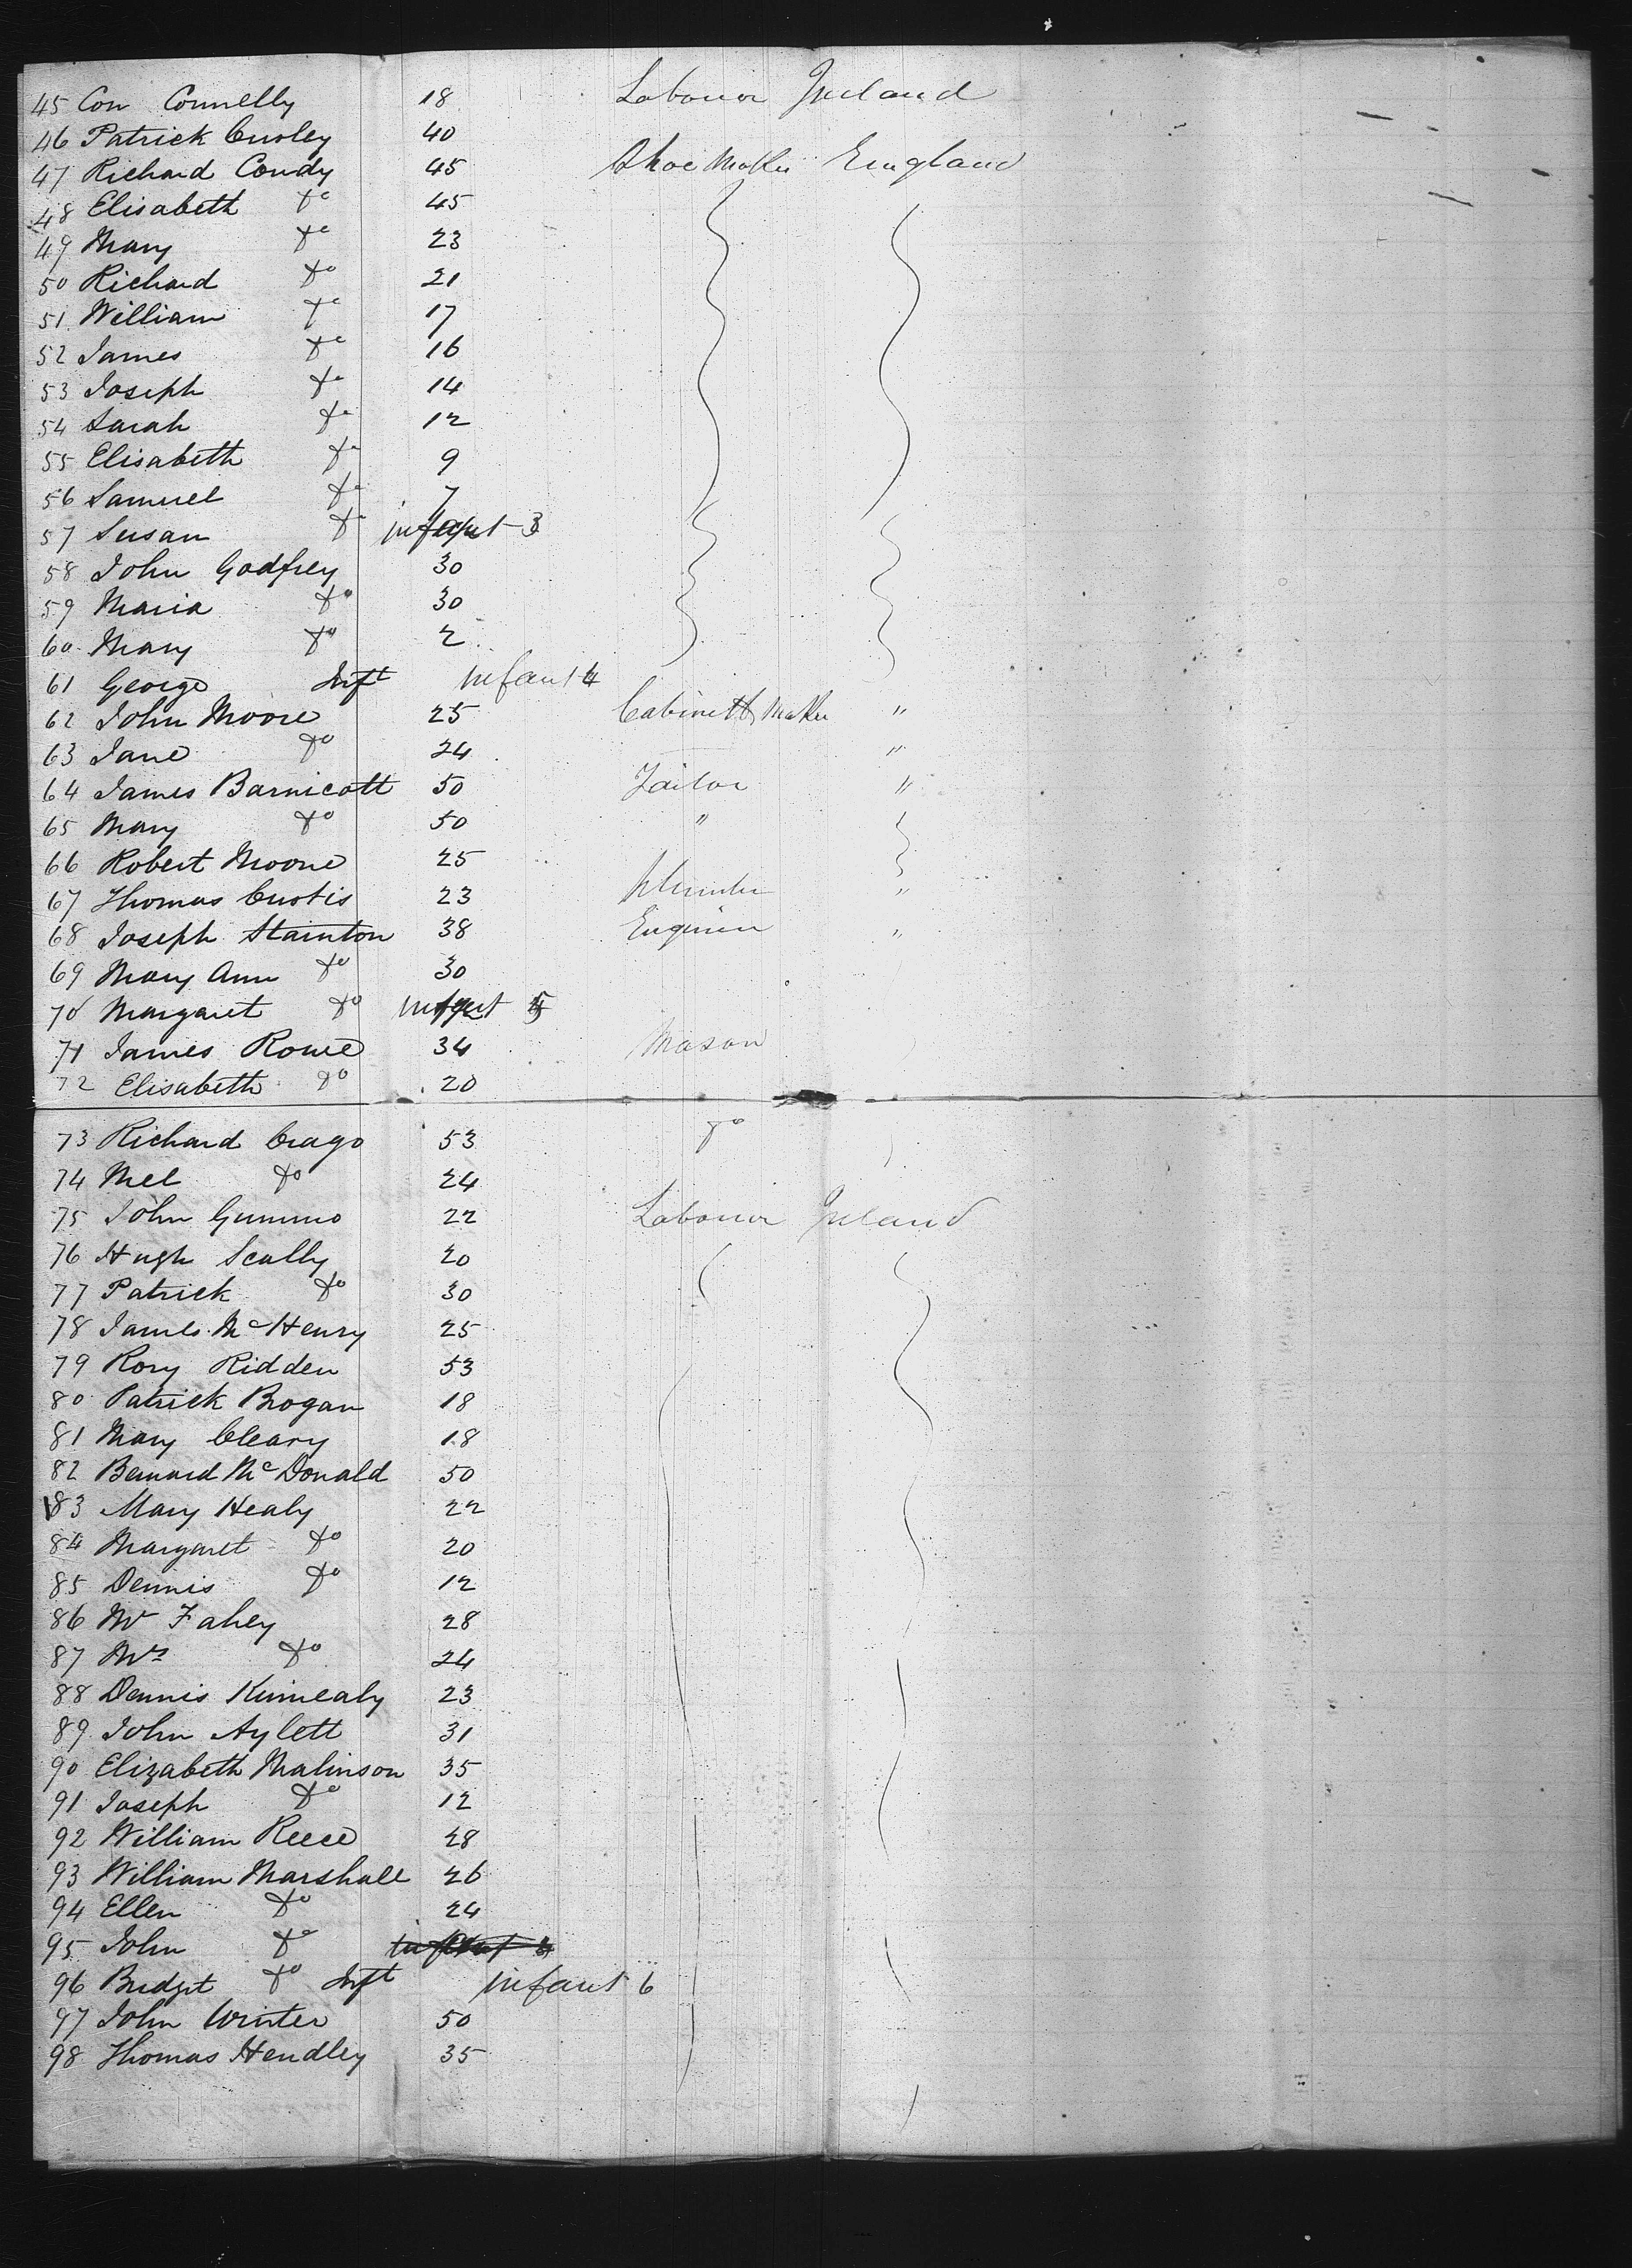 45 Con Connelly 18 Labourer Ireland
46 Patrick Cusley 40
47 Richard Condy 45 Shoe Maker England
48 Elisabeth do 45
49 Mary do 23
50 Richard do 21
51 William do 17
52 James do 16
53 Joseph do 14
54 Sarah do 12
55 Elisabeth do 9
56 Samuel do 7
57 Susan do infant 3
58 John Godfrey 30
59 Maria do 30
60 Mary do 2
61 George Inft infant 4
62 John Moore 25 Cabinett Maker "
63 Jane do 24 "
64 James Barnicott 50 Tailor "
65 Mary do 50 "
66 Robert Moore 25
67 Thomas Custis 23 Plumber "
68 Joseph Stainton 38 Engineer "
69 Mary Ann do 30
70 Margaret do infant 5
71 James Rowe 34 Mason
72 Elisabeth do 20
73 Richard Crago 53 do
74 Mel do 24
75 John Gummo 22 Labourer Ireland
76 Hugh Scally 20
77 Patrick do 30
78 James McHenry 25
79 Rory Ridden 53
80 Patrick Brogan 18
81 Mary Cleary 18
82 Bernard McDonald 50
83 Mary Healy 22
84 Margaret do 20
85 Dennis do 12
86 Mr Fahey 28
87 Mrs do 24
88 Dennis Kinnealy 23
89 John Aylett 31
90 Elizabeth Malinson 35
91 Joseph do 12
92 William Reece 28
93 William Marshall 26
94 Ellen do 24
95 John do infant
96 Bridget do Inft infant 6
97 John Winter 50
98 Thomas Hendley 35